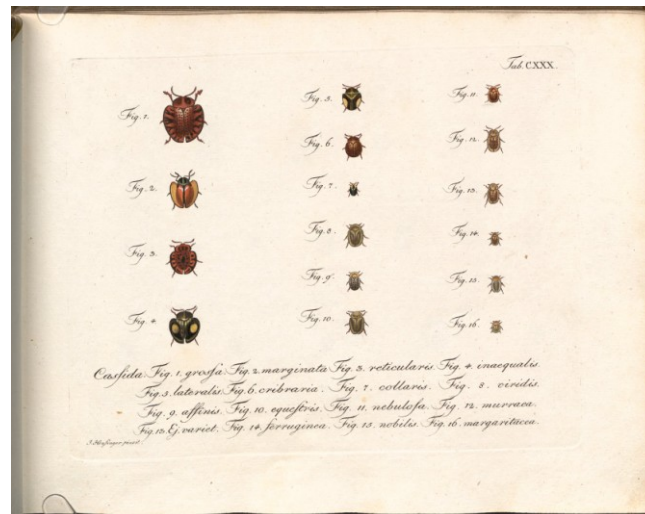 Tab. CXXX.
Fig. 1.
Fig. 2.
Fig. 3.
Fig. 4.
Fig. 5.
Fig. 6.
Fig. 7.
Fig. 8.
Fig. 9.
Fig. 10.
Fig. 11.
Fig. 12.
Fig. 13.
Fig. 14.
Fig. 15.
Fig. 16.
Cassida. Fig. 1. grossa. Fig. 2. marginata Fig. 3. reticularis. Fig. 4. inaequalis.
Fig. 5. lateralis. Fig. 6. cribraria. Fig. 7. collaris. Fig. 8. viridis.
Fig. 9. affinis. Fig. 10. equestris. Fig. 11. nebulosa. Fig. 12. murraea.
Fig. 13. Ej. variet. Fig. 14. ferruginea. Fig. 15. nobilis. Fig. 16. margaritacea.
pinxit